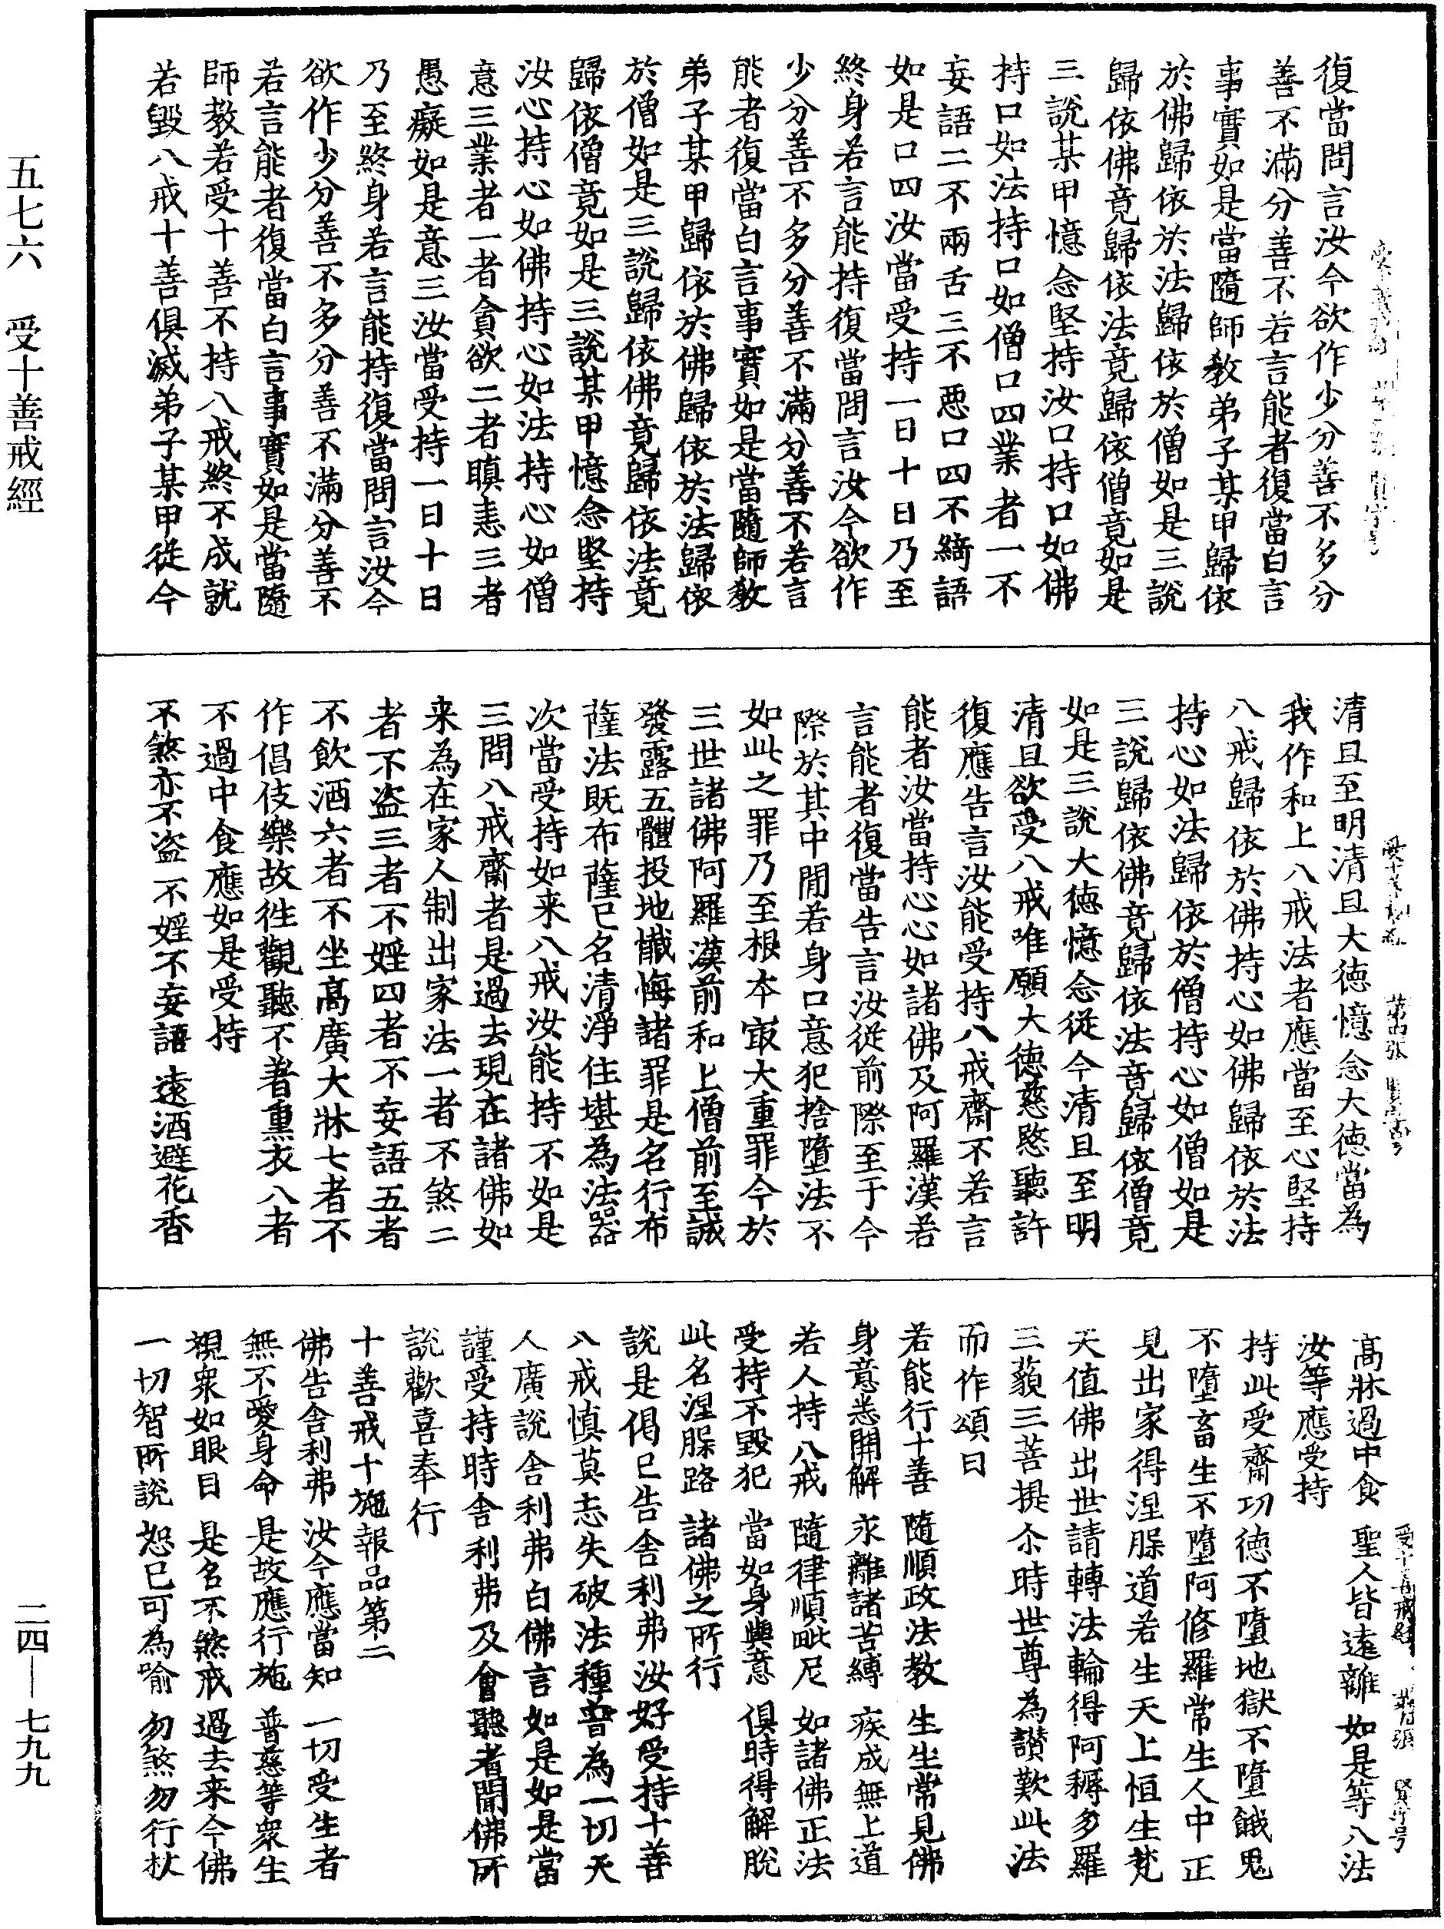 復當問言汝今欲作少分善不多分
善不滿分善不若言能者復當白言
事實如是當隨師教弟子某甲歸依
於佛歸依於法歸依於僧如是三說
歸依佛竟歸依法竟歸依僧竟如是
三說某甲憶念堅持汝口持口如佛
持口如法持口如僧口四業者一不
妄語二不兩舌三不惡口四不綺語
如是口四汝當受持一日十日乃至
終身若言能持復當問言汝今欲作
少分善不多分善不滿分善不若言
能者復當白言事實如是當隨師教
弟子某甲歸依於佛歸依於法歸依
於僧如是三說歸依佛竟歸依法竟
歸依僧竟如是三說某甲憶念堅持
汝心持心如佛持心如法持心如僧
意三業者一者貪欲二者瞋恚三者
愚癡如是意三汝當受持一日十日
乃至終身若言能持復當問言汝今
欲作少分善不多分善不滿分善不
若言能者復當白言事實如是當隨
師教若受十善不持八戒終不成就
若毀八戒十善俱滅弟子某甲從今
清旦至明清旦大德憶念大德當為
我作和上八戒法者應當至心堅持
八戒歸依於佛持心如佛歸依於法
持心如法歸依於僧持心如僧如是
三說歸依佛竟歸依法竟歸依僧竟
如是三說大德憶念從今清旦至明
清旦欲受八戒唯願大德慈愍聽許
復應告言汝能受持八戒齋不若言
能者汝當持心心如諸佛及阿羅漢若
言能者復當告言汝從前際至于今
際於其中閒若身口意犯捨墮法不
如此之罪乃至根本㝡大重罪今於
三世諸佛阿羅漢前和上僧前至誠
發露五體投地懺悔諸罪是名行布
薩法既布薩已名清淨住堪為法器
次當受持如来八戒汝能持不如是
三問八戒齋者是過去現在諸佛如
来為在家人制出家法一者不煞二
者不盜三者不婬四者不妄語五者
不飲酒六者不坐高廣大牀七者不
作倡伎樂故往觀聽不著熏衣八者
不過中食應如是受持
不煞亦不盜 不婬不妄語 遠酒避花香
高牀過中食 聖人皆遠離 如是等八法
汝等應受持
持此受齋功德不墮地獄不墮餓鬼
不墮畜生不墮阿修羅常生人中正
見出家得涅槃道若生天上恒生梵
天值佛出世請轉法輪得阿耨多羅
三藐三菩提尒時世尊為讃歎此法
而作頌曰
若能行十善 隨順政法教 生生常見佛
身意悉開解 永離諸苦縛 疾成無上道
若人持八戒 隨律順毗尼 如諸佛正法
受持不毀犯 當如身與意 俱時得解脫
此名涅槃路 諸佛之所行
說是偈已告舍利弗汝好受持十善
八戒慎莫忘失破法種普為一切天
人廣說舍利弗白佛言如是如是當
謹受持時舍利弗及會聽者聞佛所
說歡喜奉行
十善戒十施報品第二
佛告舍利弗 汝今應當知 一切受生者
無不愛身命 是故應行施 普慈等衆生
視衆如眼目 是名不煞戒 過去来今佛
一切智所說 恕己可為喻 勿煞勿行杖
五七六 受十善戒經
二四—七九九